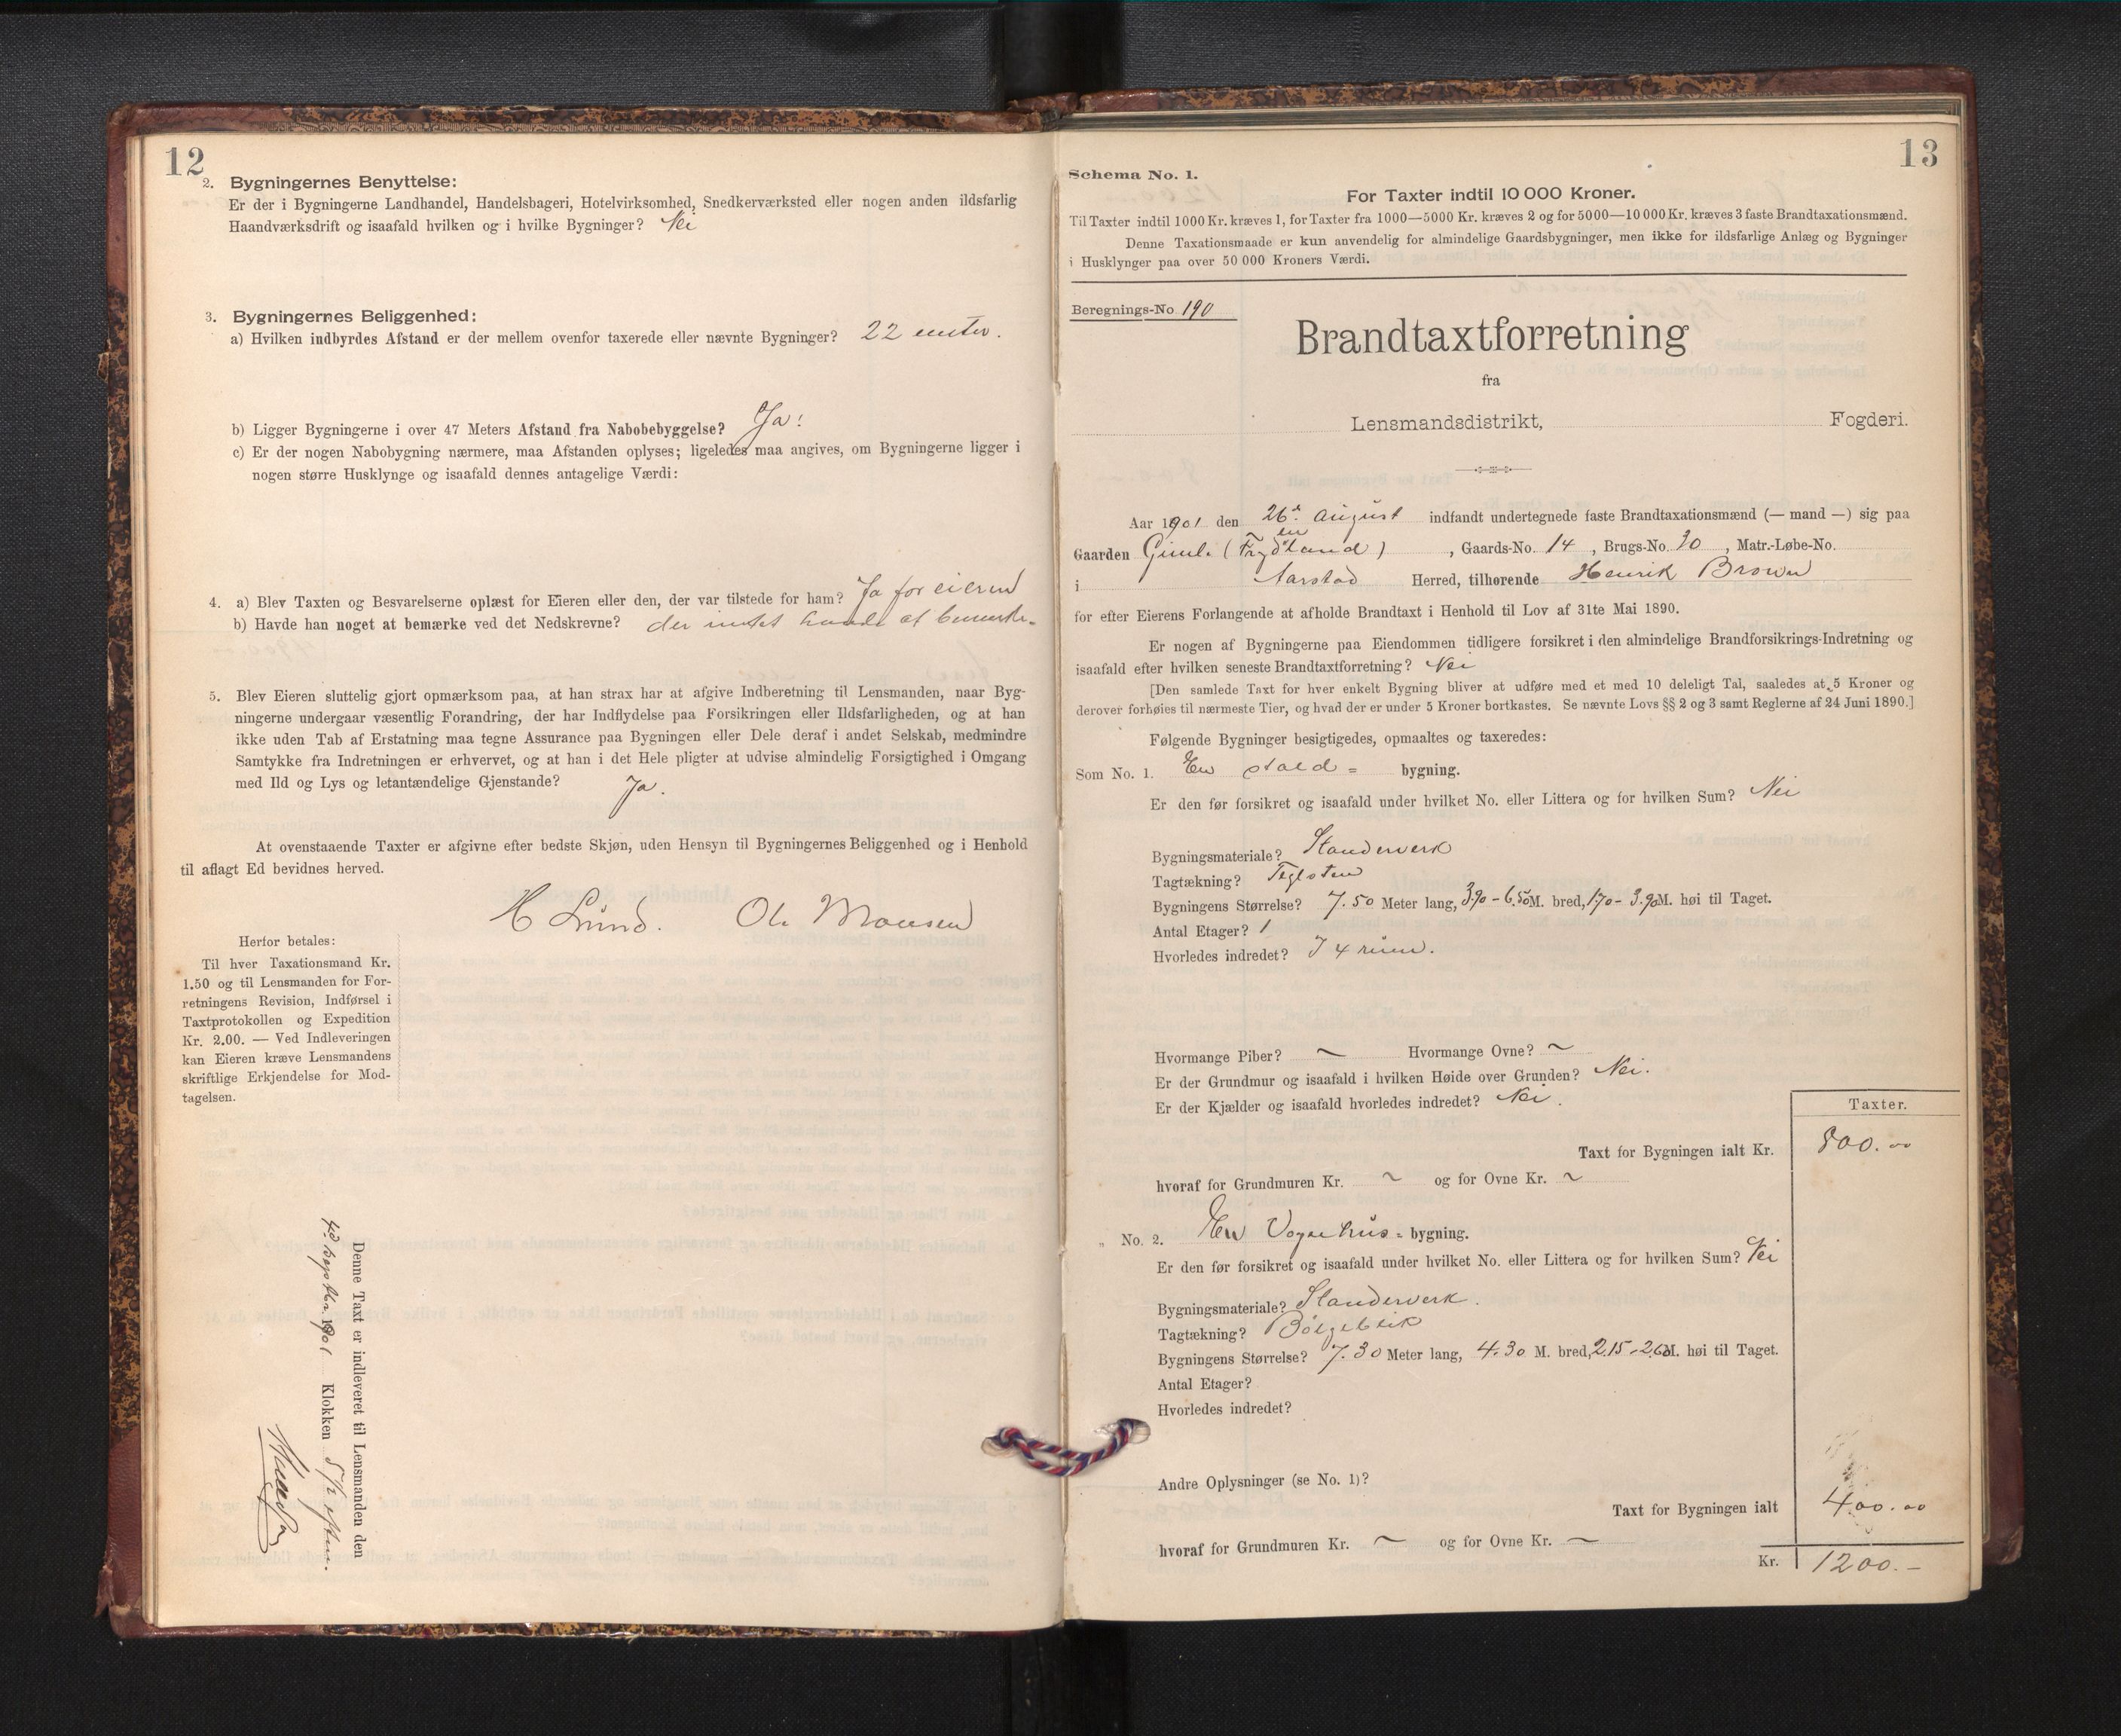 12
2. Bygningernes Benyttelse:
Er der i Bygningerne Landhandel, Handelsbageri, Hotelvirksomhed, Snedkerværksted eller nogen anden ildsfarlig
Haandværksdrift og isaafald hvilken og i hvilke Bygninger? Nei
3. Bygningernes Beliggenhed:
a) Hvilken indbyrdes Afstand er der mellem ovenfor taxerede eller nævnte Bygninger? 22 meter.
b) Ligger Bygningerne i over 47 Meters Afstand fra Nabobebyggelse? Ja!
c) Er der nogen Nabobygning nærmere, maa Afstanden oplyses; ligeledes maa angives, om Bygningerne ligger i
nogen større Husklynge og isaafald dennes antagelige Værdi:
4. a) Blev Taxten og Besvarelserne oplæst for Eieren eller den, der var tilstede for ham? Ja for eieren
b) Havde han noget at bemærke ved det Nedskrevne? der intet havde at bemerke.
5. Blev Eieren sluttelig gjort opmærksom paa, at han strax har at afgive Indberetning til Lensmanden, naar Byg-
ningerne undergaar væsentlig Forandring, der har Indflydelse paa Forsikringen eller Ildsfarligheden, og at han
ikke uden Tab af Erstatning maa tegne Assurance paa Bygningen eller Dele deraf i andet Selskab, medmindre
Samtykke fra Indretningen er erhvervet, og at han i det Hele pligter at udvise almindelig Forsigtighed i Omgang
med Ild og Lys og letantændelige Gjenstande? Ja.
At ovenstaaende Taxter er afgivne efter bedste Skjøn, uden Hensyn til Bygningernes Beliggenhed og i Henhold
til aflagt Ed bevidnes herved.
H Lund. Ole Monsen
Herfor betales:
Til hver Taxationsmand Kr.
1.50 og til Lensmanden for For-
retningens Revision, Indførsel i
Taxtprotokollen og Expedition
Kr. 2.00. — Ved Indleveringen
kan Eieren kræve Lensmandens
skriftlige Erkjendelse for Mod-
tagelsen.
Denne Taxt er indleveret til Lensmanden den
septbr. 1901 Klokken 5 1/2 efterm.
13
Schema No. 1.
For Taxter indtil 10 000 Kroner.
Til Taxter indtil 1000 Kr. kræves 1, for Taxter fra 1000—5000 Kr. kræves 2 og for 5000—10 000 Kr. kræves 3 faste Brandtaxationsmænd.
Denne Taxationsmaade er kun anvendelig for almindelige Gaardsbygninger, men ikke for ildsfarlige Anlæg og Bygninger
i Husklynger paa over 50 000 Kroners Værdi.
Beregnings-No 190
Brandtaxtforretning
fra
Lensmandsdistrikt, Fogderi.
Aar 1901 den 26de August indfandt undertegnede faste Brandtaxationsmænd (— mand —) sig paa
Gaarden Gimle (Frydenlund), Gaards-No. 14, Brugs-No. 30, Matr.-Løbe-No.
i Aarstad Herred, tilhørende Henrik Brown
for efter Eierens Forlangende at afholde Brandtaxt i Henhold til Lov af 31te Mai 1890.
Er nogen af Bygningerne paa Eiendommen tidligere forsikret i den almindelige Brandforsikrings-Indretning og
isaafald efter hvilken seneste Brandtaxtforretning? Nei
[Den samlede Taxt for hver enkelt Bygning bliver at udføre med et med 10 deleligt Tal, saaledes at 5 Kroner og
derover forhøies til nærmeste Tier, og hvad der er under 5 Kroner bortkastes. Se nævnte Lovs §§ 2 og 3 samt Reglerne af 24 Juni 1890.]
Følgende Bygninger besigtigedes, opmaaltes og taxeredes:
Som No. 1. En stald = bygning.
Er den før forsikret og isaafald under hvilket No. eller Littera og for hvilken Sum? Nei
Bygningsmateriale? Standerverk
Tagtækning? Teglsten
Bygningens Størrelse? 7.50 Meter lang, 3.90 - 6.50 M. bred, 1.70 - 3.90 M. høi til Taget.
Antal Etager? 1
Hvorledes indredet? I 4 rum.
Hvormange Piber? ~ Hvormange Ovne? ~
Er der Grundmur og isaafald i hvilken Høide over Grunden? Nei.
Er der Kjælder og isaafald hvorledes indredet? Nei.
Taxter.
Taxt for Bygningen ialt Kr. 800.00
hvoraf for Grundmuren Kr. ~ og for Ovne Kr. ~
„ No. 2. En Vognhus = bygning.
Er den før forsikret og isaafald under hvilket No. eller Littera og for hvilken Sum? Nei
Bygningsmateriale? Standerverk.
Tagtækning? Bølgeblik
Bygningens Størrelse? 7.30 Meter lang, 4.30 M. bred, 2.15 - 2.60 M. høi til Taget.
Antal Etager?
Hvorledes indredet?
Andre Oplysninger (se No. 1)?
Taxt for Bygningen ialt 400.00
hvoraf for Grundmuren Kr. ~ og for Ovne Kr. ~
Kr. 1200.-